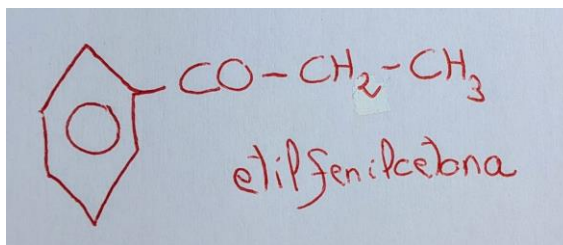 CO-CH₂-CH₃
etilfenilcetona